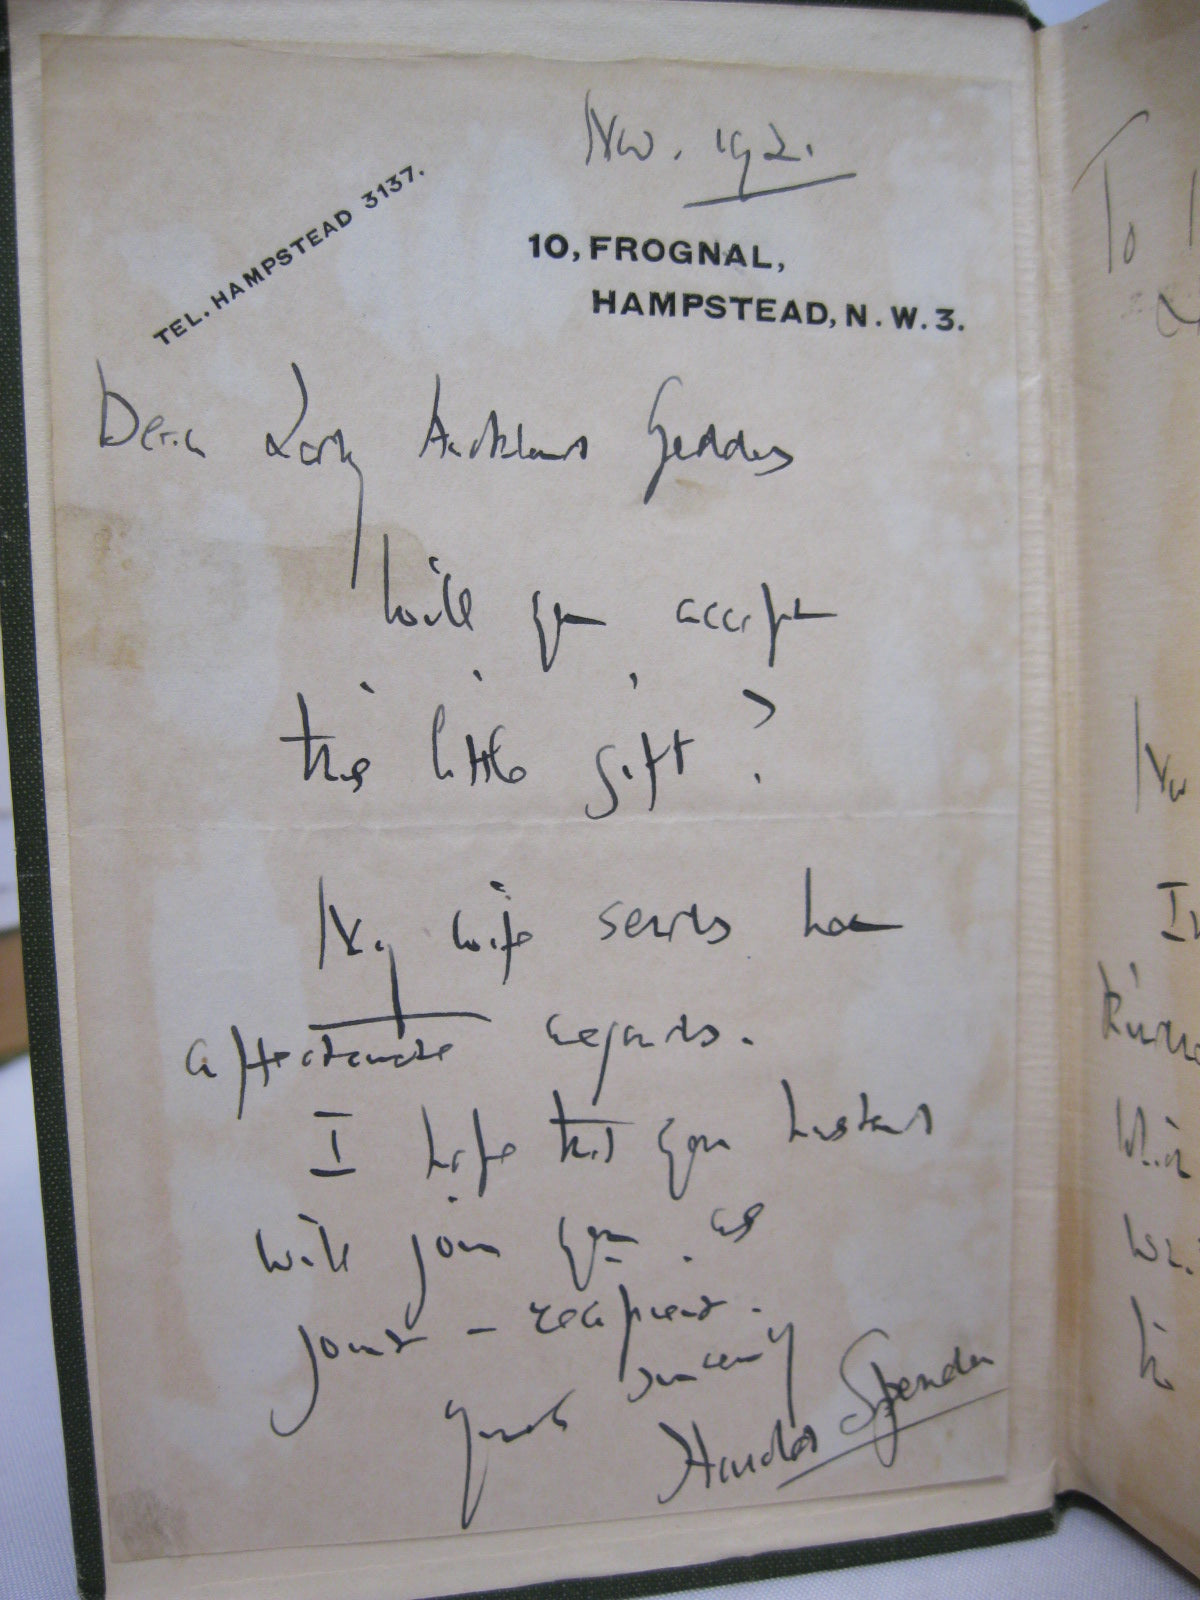 Nov. 1921
TEL. HAMPSTEAD 3137.
10, FROGNAL,
HAMPSTEAD, N.W.3.
Dear Lady Auckland Geddes
Will you accept
this little gift?
My wife sends her
affectionate regards.
I hope that your husband
will join you as
joint-recipient.
yours sincerely
Harold Spender
To